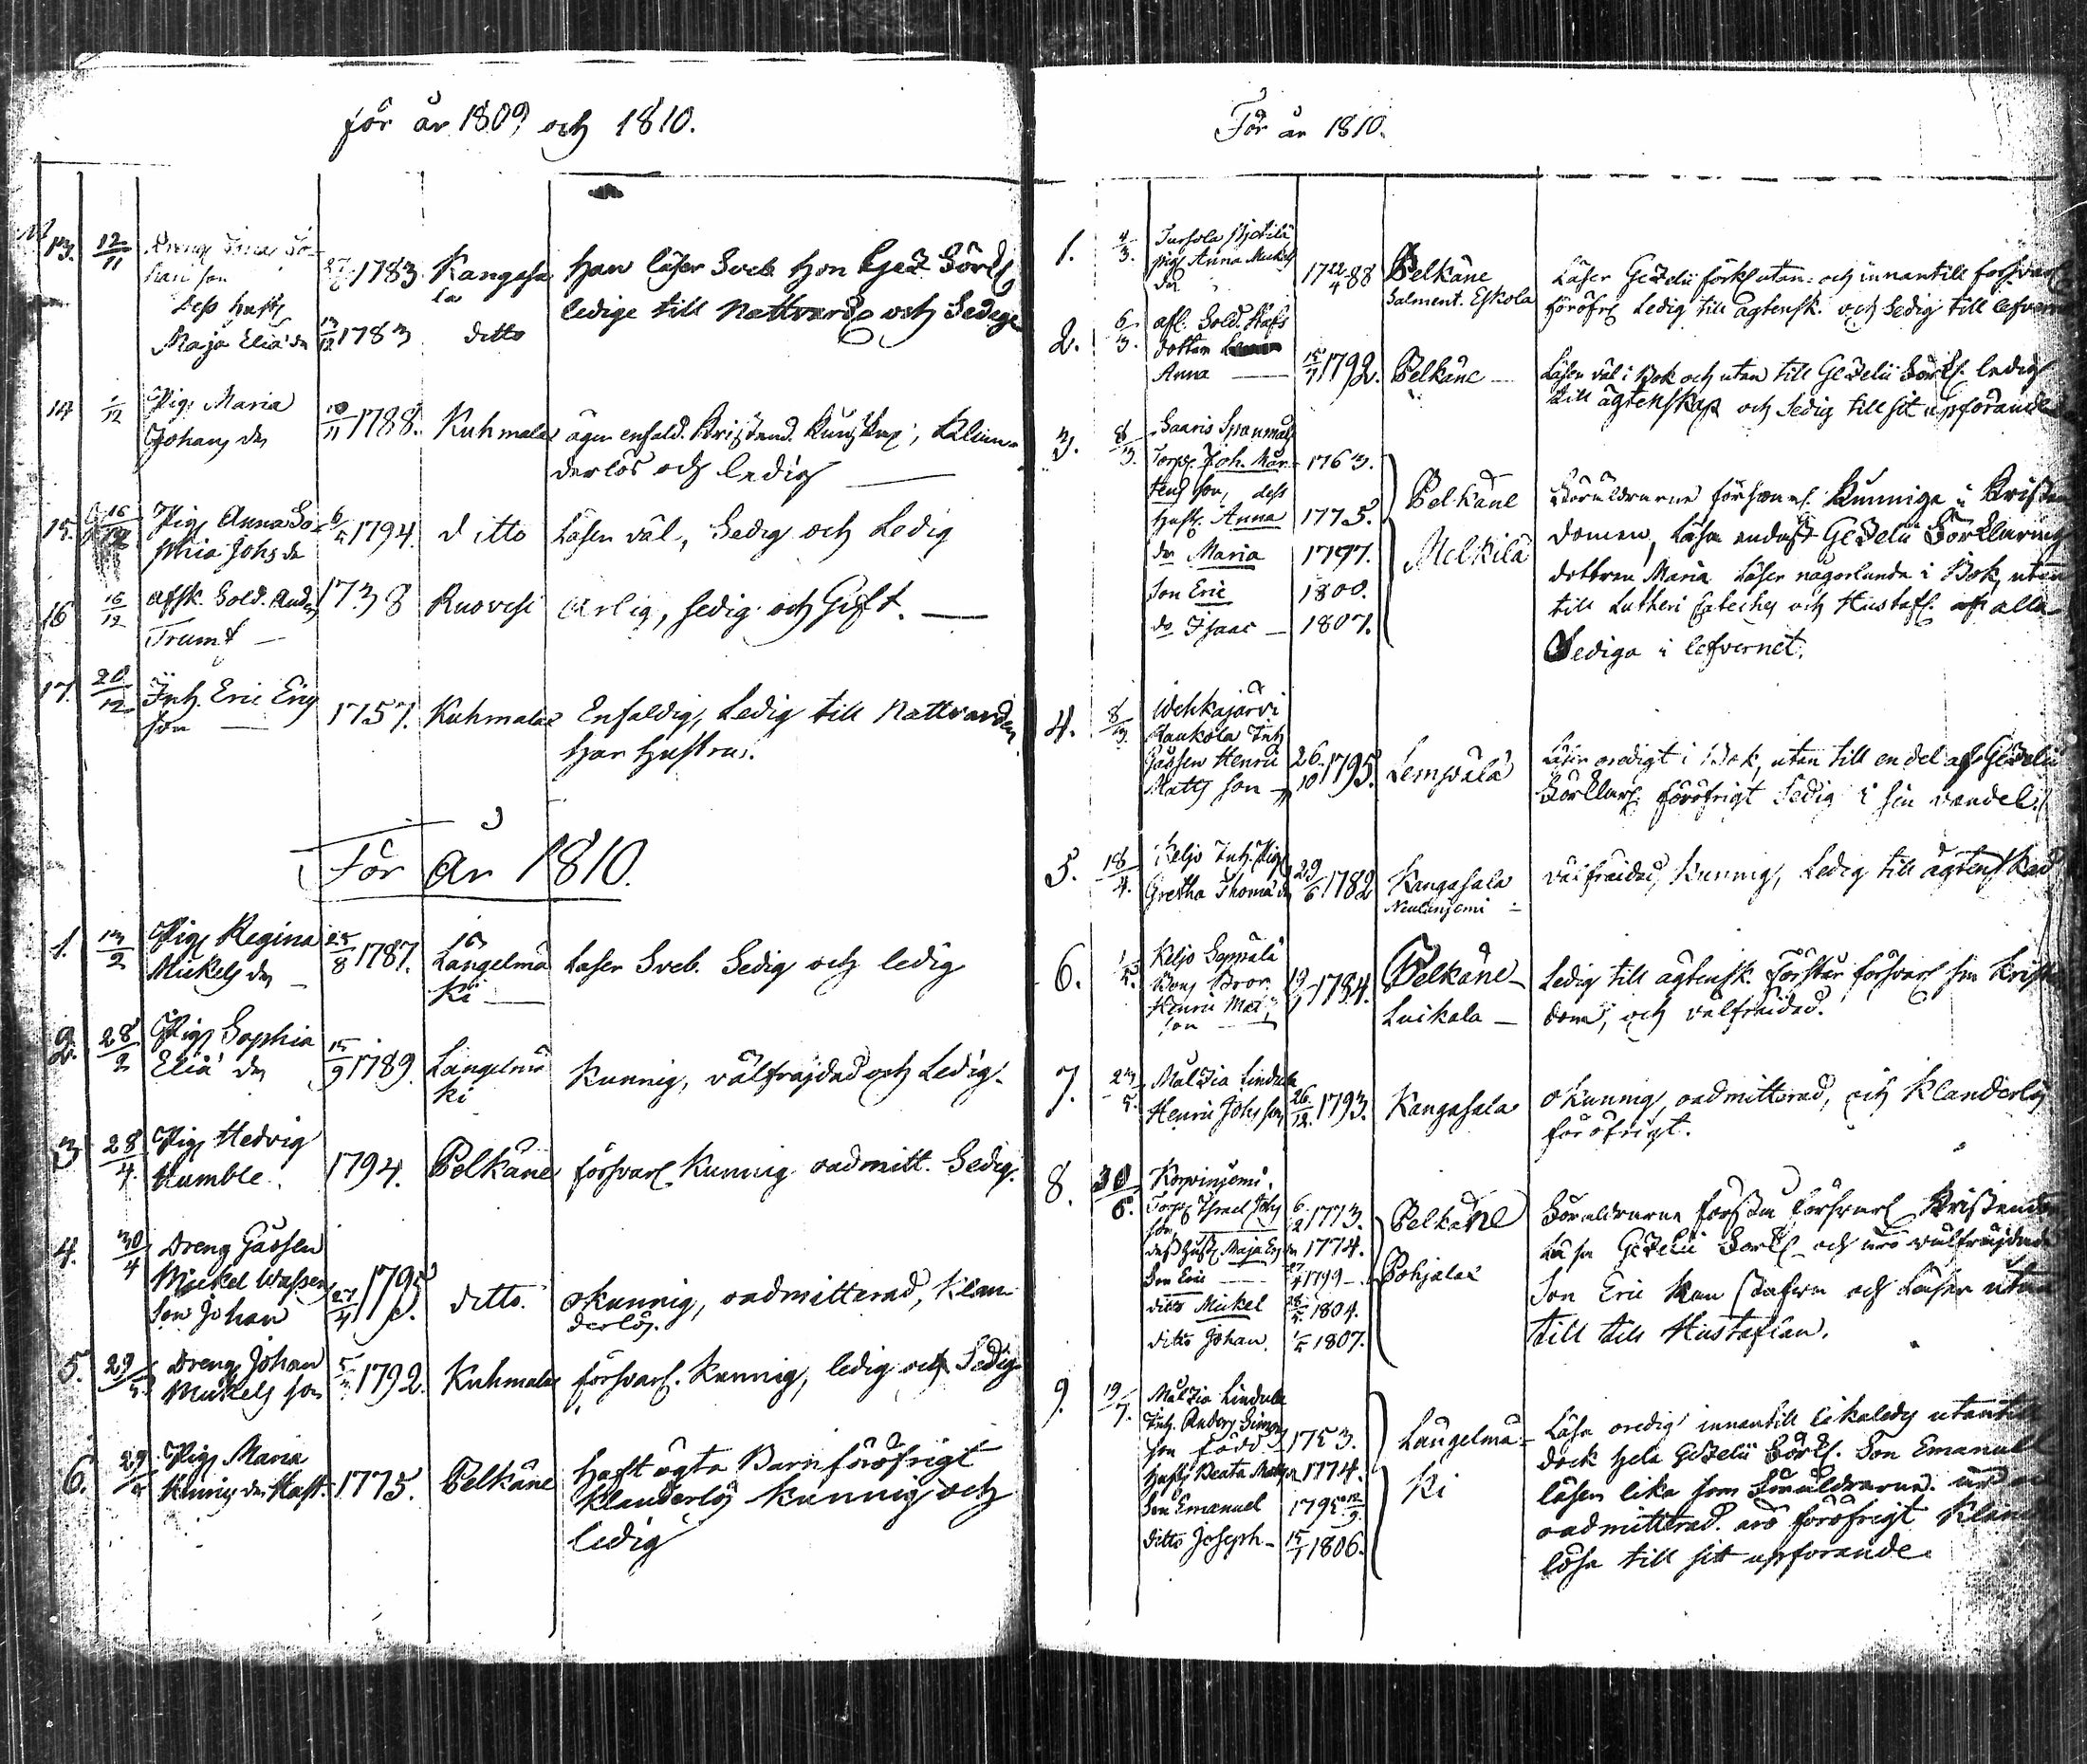 för år 1809 och 1810.
13. 12/11 Dreng Jo-
han son 27 1783. Kangasa
la Han läser Sveb. Hon Gez. Förkl.
Dess Hustr.
Maja Eliæ dr 1783 ditto ledige till Nattvard och Sedige
14 1/12 Pig. Maria
Johans dr 10/11 1788. Kuhmalax äger enfald. Kristend. Kunskap, Klan-
derlös och ledig
15. 16/12 Pig. Anna So-
phia Johs dr 1794. ditto Läser väl, Sedig och Ledig
16 16/12 afsk. Sold. Anders
Trumf 1738 Ruovesi Ärlig, sedig och Gift.
17. 20/12 Inh. Eric Erics
son 1757. Kuhmalax Enfaldig, Ledig till Nattvarden,
Har Hustru.
För År 1810.
1. 13/2 Pig. Regina
Mickels dr 25/8 1787. Längelmä
ki Läser Sveb. Sedig och ledig
2. 28/2 Pig. Sophia
Eliæ dr 15/9 1789. Längelmä
ki Kunnig, välfräjdad och Ledig.
3 28/4 Pig. Hedvig
Humble. 1794. Pelkäne försvarl. Kunnig oadmitt. Sedig.
4. 30/4 Dreng Gåssen
Mickel
Son Johan 27/4 1795. ditto. Okunnig, oadmitterad, Klan-
derlös.
5. 29/5 Dreng Johan
Mickels son 1792. Kuhmalax försvarl. Kunnig, ledig och Sedig
6. 29/5 Pig. Maria
1775. Pelkäne Haft ägta Barn föröfrigt
Klanderlös Kunnig och
ledig
För år 1810.
1. 4/3. Jussila
pig. Anna Mickels
dr 22/4 1788 Pelkäne
Salment. Eskola Läser Gezelii förkl. utan- och innantill försvarl.
föröfr. Ledig till ägtensk. och Sedig till lefvern
2. 6/3. afl. Sold.
dotter
Anna 15/7 1792. Pelkäne Läser väl i Bok och utan till Gezelii Förkl. ledig
till ägtenskap och Sedig till sit upförande
3. 8/3. Saaris
Torp. Joh. Mår-
tens son, dess 1763. Pelkäne
Hustr. Anna 1775.
dr Maria 1797. Mälkilä
Son Eric 1800.
do Isaac 1807.
Föräldrarne försvarl. Kunnige i Kristen
domen, Läsa endast Gezelii Förklaring
dottren Maria Läser någorlunda i Bok, utan
till Lutheri Cateches och Hustafl. alla
Sediga i lefvernet.
4. 8/3. Wehkajärvi
Raukola Inh.
Gåssen Henric
Matts son 26/10 1795. Lempälä Läser oredigt i Bok, utan till en del af Gezelii
Förklar. föröfrigt Sedig i sin vandel.
5. 18/4. Keljo Inh. Pig.
Gretha Thomæ dr 29/6 1782 Kangasala
Neulanjemi välfräidad, Kunnig, Ledig till ägtenskap
6. 1/5. Keljo Seppälä
Bonds Bror
Henric Mats
son 1784. Pelkäne
Luikala Ledig till ägtensk. Förstår försvarl. sin Kristen
dom, och välfräidad.
7. 23/5. Maltzia Lindula
Henric Johs son 26/12. 1793. Kangasala Okunnig, oadmitterad, och Klanderlös
föröfrigt.
8. 30/6. Korpinjemi.
Torp. Israel Johs
son 6/2 1773. Pelkäne
dess Hustr. Maja Ers dr 1774.
Son Eric 1799 Pohjalax
ditto Mickel 28/5 1804.
ditto Johan. 1/5 1807.
Föräldrarne förstå försvarl. Kristendom
Läsa Gezelii Förkl. och äro välfräjdade
Son Eric kan stafva och Läser utan
till till Hustaflan.
9. 19/7. Maltzia Lindula
Inh. Anders Simons
son född 1753. Längelmä-
Hustr. Beata Matts dr 1774. ki
Son Emanuel 1795 12/9.
ditto Joseph 15/1 1806.
Läsa oredig innantill likaledes utantill
dock hela Gezelii Förkl. Son Emanuel
läser lika som Föräldrarne. är
oadmitterad. äro föröfrigt Klander
lösa till sitt upförande